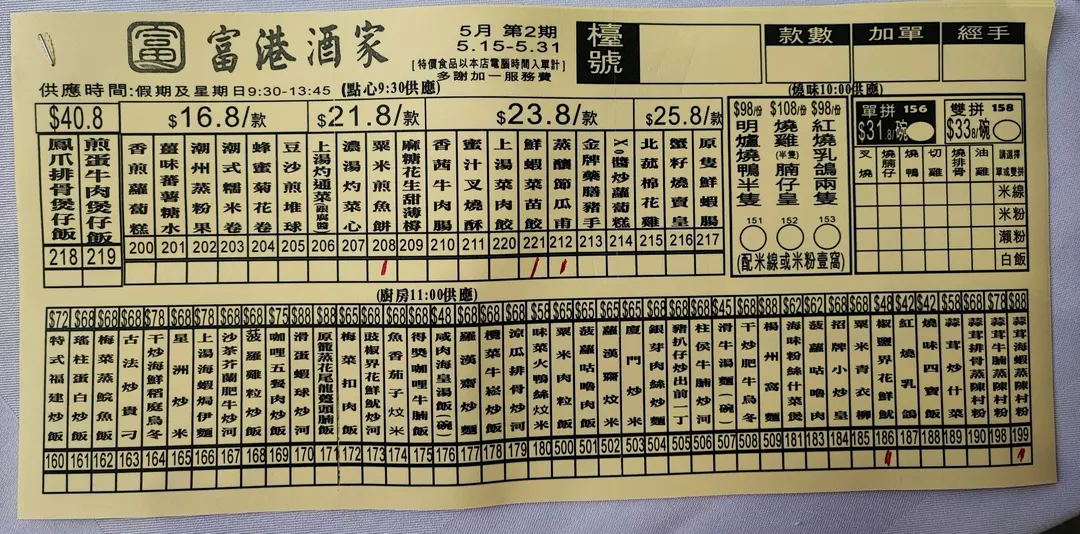 富 富港酒家
5月 第2期
5.15-5.31
[特價食品以本店電腦時間入單計]
多謝加一服務費
檯號
款數
加單
經手
供應時間:假期及星期日9:30-13:45 (點心9:30供應)
(燒味10:00供應)
$40.8
$16.8/款
$21.8/款
$23.8/款
$25.8/款
鳳爪排骨煲仔飯 218
煎蛋牛肉煲仔飯 219
香煎蘿蔔糕 200
薑味蕃薯糖水 201
潮州蒸粉果 202
潮式糯米卷 203
蜂蜜菊花卷 204
豆沙煎堆球 205
上湯灼通菜(跟腐醬) 206
濃湯灼菜心 207
粟米煎魚餅 208
麻糖花生甜薄撐 209
香茜牛肉腸 210
蜜汁叉燒酥 211
上湯菜肉餃 220
鮮蝦菜苗餃 221
蒸釀節瓜甫 212
金牌藥膳豬手 213
XO醬炒蘿蔔糕 214
北菇棉花雞 215
蟹籽燒賣皇 216
原隻鮮蝦腸 217
$98/份 明爐燒鴨半隻 151
$108/份 燒雞(半隻)腩仔皇 152
$98/份 紅燒乳鴿兩隻 153
(配米線或米粉壹窩)
單拼 156
$31.8/碗
雙拼 158
$33.8/碗
叉燒
燒腩仔
燒鴨
切雞
燒排骨
油雞
請選擇單或雙拼
米線
米粉
瀨粉
白飯
(廚房11:00供應)
$72 特式福建炒飯 160
$68 瑤柱蛋白炒飯 161
$68 梅菜蒸鯇魚飯 162
$68 古法炒貴刁 163
$78 干炒海鮮稻庭烏冬 164
$68 星洲炒米 165
$78 上湯海蝦焗伊麵 166
$68 沙茶芥蘭肥牛炒河 167
$68 菠蘿雞粒炒飯 168
$68 咖哩五餐肉炒飯 169
$75 滑蛋蝦球炒河 170
$68 原籠蒸花尾龍躉頭腩飯 171
$88 梅菜扣肉飯 172
$68 豉椒界花鮮魷炒河 173
$68 魚香茄子炆米 174
$68 得獎咖哩牛腩飯 175
$68 咸肉海皇湯飯(碗) 176
$68 羅漢齋炒麵 177
$68 欖菜牛崧炒飯 178
$68 涼瓜排骨炒河 179
$58 味菜火鴨絲炆米 180
$65 粟米肉粒飯 500
$65 菠蘿咕嚕肉飯 501
$65 蘿漢齋炆米 502
$65 廈門炒米 503
$68 銀芽肉絲炒麵 504
$68 豬扒仔炒出前一丁 505
$68 柱侯牛腩炒河 506
$45 滑牛湯麵(碗) 507
$68 干炒肥牛烏冬 508
$88 楊州窩麵 509
$62 海味粉絲什菜煲 181
$62 菠蘿咕嚕肉 183
$68 招牌小炒皇 184
$68 粟米青衣柳 185
$48 椒鹽界花鮮魷 186
$42 紅燒乳鴿 187
$42 燒味四寶飯 188
$58 蒜茸炒什菜 189
$68 蒜茸排骨蒸陳村粉 190
$78 蒜茸牛腩蒸陳村粉 198
$88 蒜茸海蝦蒸陳村粉 199